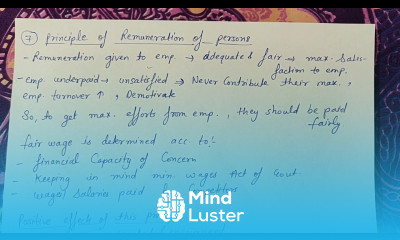 ⑦ Principle of Remuneration of persons
- Remuneration given to emp. → adequate & fair → max. Satis-
faction to emp.
- Emp. underpaid → unsatisfied → Never Contribute their max.,
emp. turnover ↑, Demotivate
So, to get max. efforts from emp., they should be paid
fairly
fair wage is determined acc. to:-
- financial Capacity of Concern
- Keeping in mind min. wages Act of Govt.
- wages/Salaries paid by Competitors
Positive effects of this
Mind
Luster